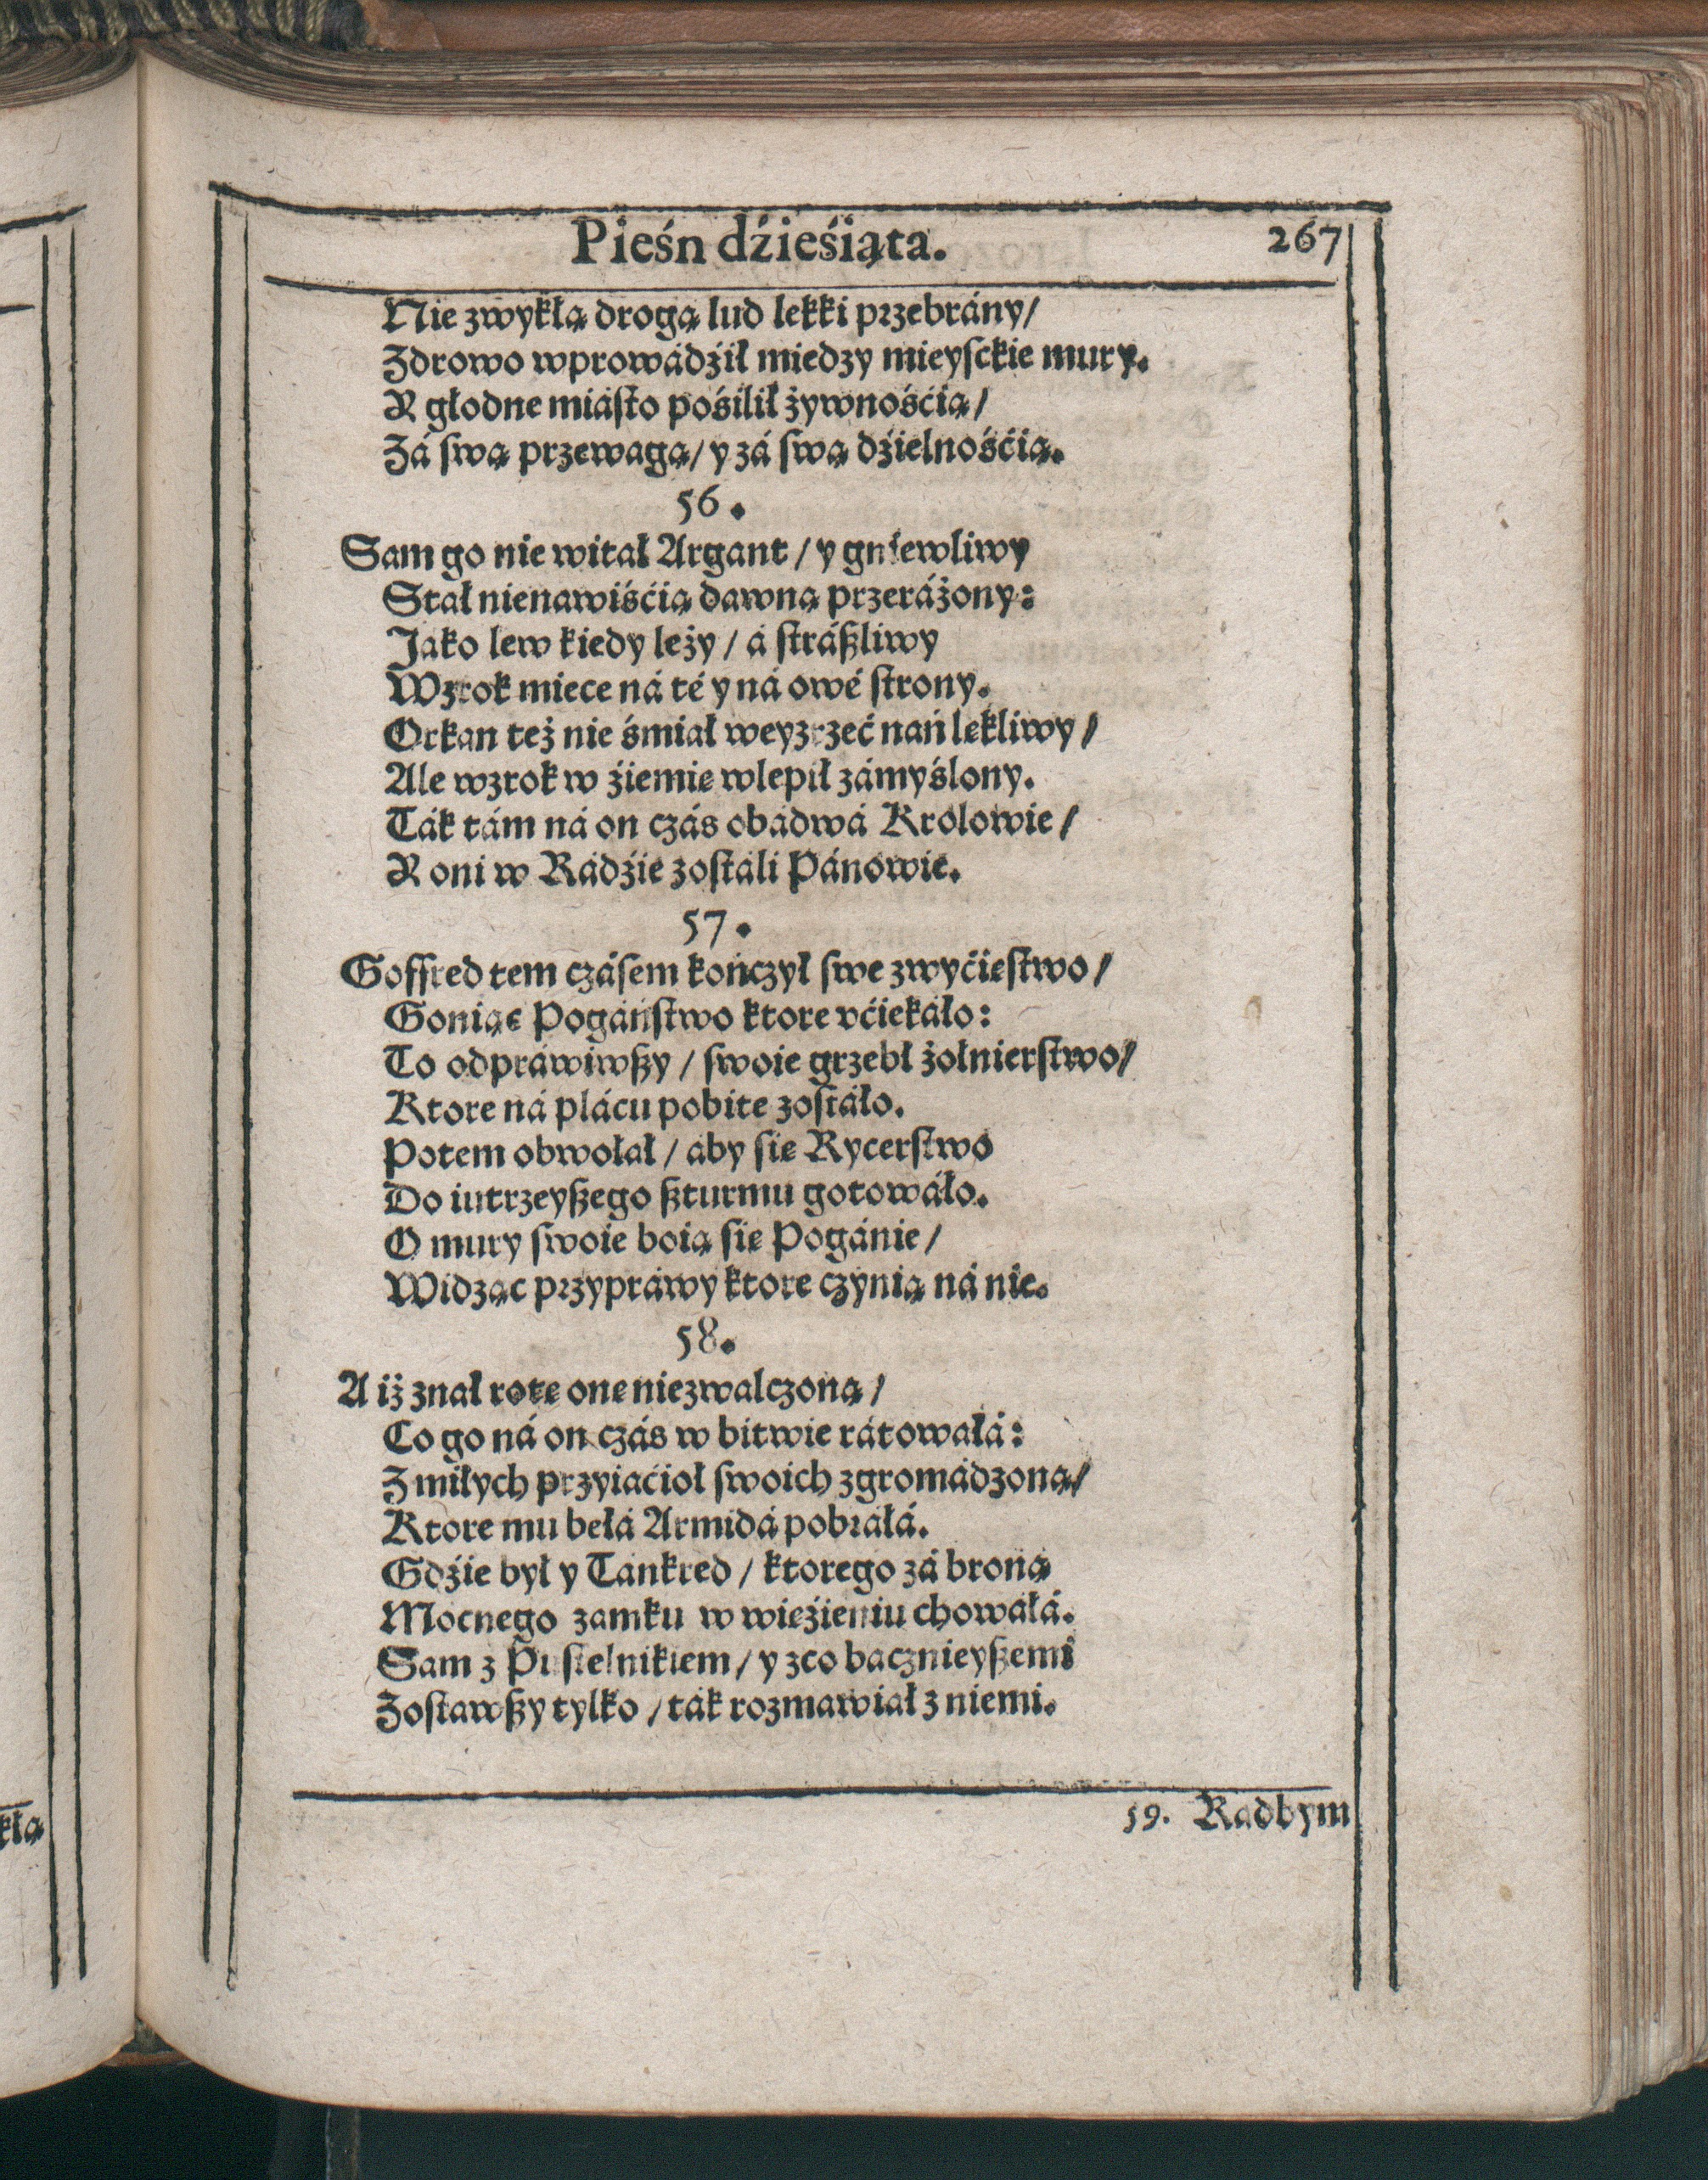 Pieśn dźieśiąta. 267
Nie zwykłą drogą lud lekki przebrány/
Zdrowo wprowádźił miedzy mieyſckie mury.
Y głodne miáſto pośilił żywnośćią/
Zá ſwą przewagą/ y zá ſwą dźielnośćią.
56.
Sam go nie witał Argant/ y gniewliwy
Stał nienawiśćią dawną przeráżony:
Jako lew kiedy leży/ á ſtráßliwy
Wzrok miece ná té y ná owé ſtrony.
Orkan też nie śmiał weyzrzeć nań lękliwy/
Ale wzrok w źiemię wlepił zámyślony.
Ták tám ná on czás obádwá Krolowie/
Y oni w Rádźie zoſtáli Pánowie.
57.
Goffred tem czáſem kończył ſwe zwyćięſtwo/
Goniąc Pogáńſtwo ktore vćiekáło:
To odpráwiwßy/ ſwoie grzebł żołnierſtwo/
Ktore ná plácu pobite zoſtáło.
Potem obwołał/ aby ſię Rycerſtwo
Do iutrzeyßego ßturmu gotowáło.
O mury ſwoie boią ſię Pogánie/
Widząc przypráwy ktore czynią ná nie.
58.
A iż znał rotę onę niezwalczoną/
Co go ná on czás w bitwie rátowáłá:
Z miłych przyiaćioł ſwoich zgromádzoną/
Ktore mu bełá Armidá pobráłá.
Gdźie był y Tankred/ ktorego zá broną
Mocnego zamku w więźieniu chowáłá.
Sam z Puſtelnikiem/ y z co bacznieyßemi
Zoſtawßy tylko/ ták rozmawiał z niemi.
59. Radbym
kłą